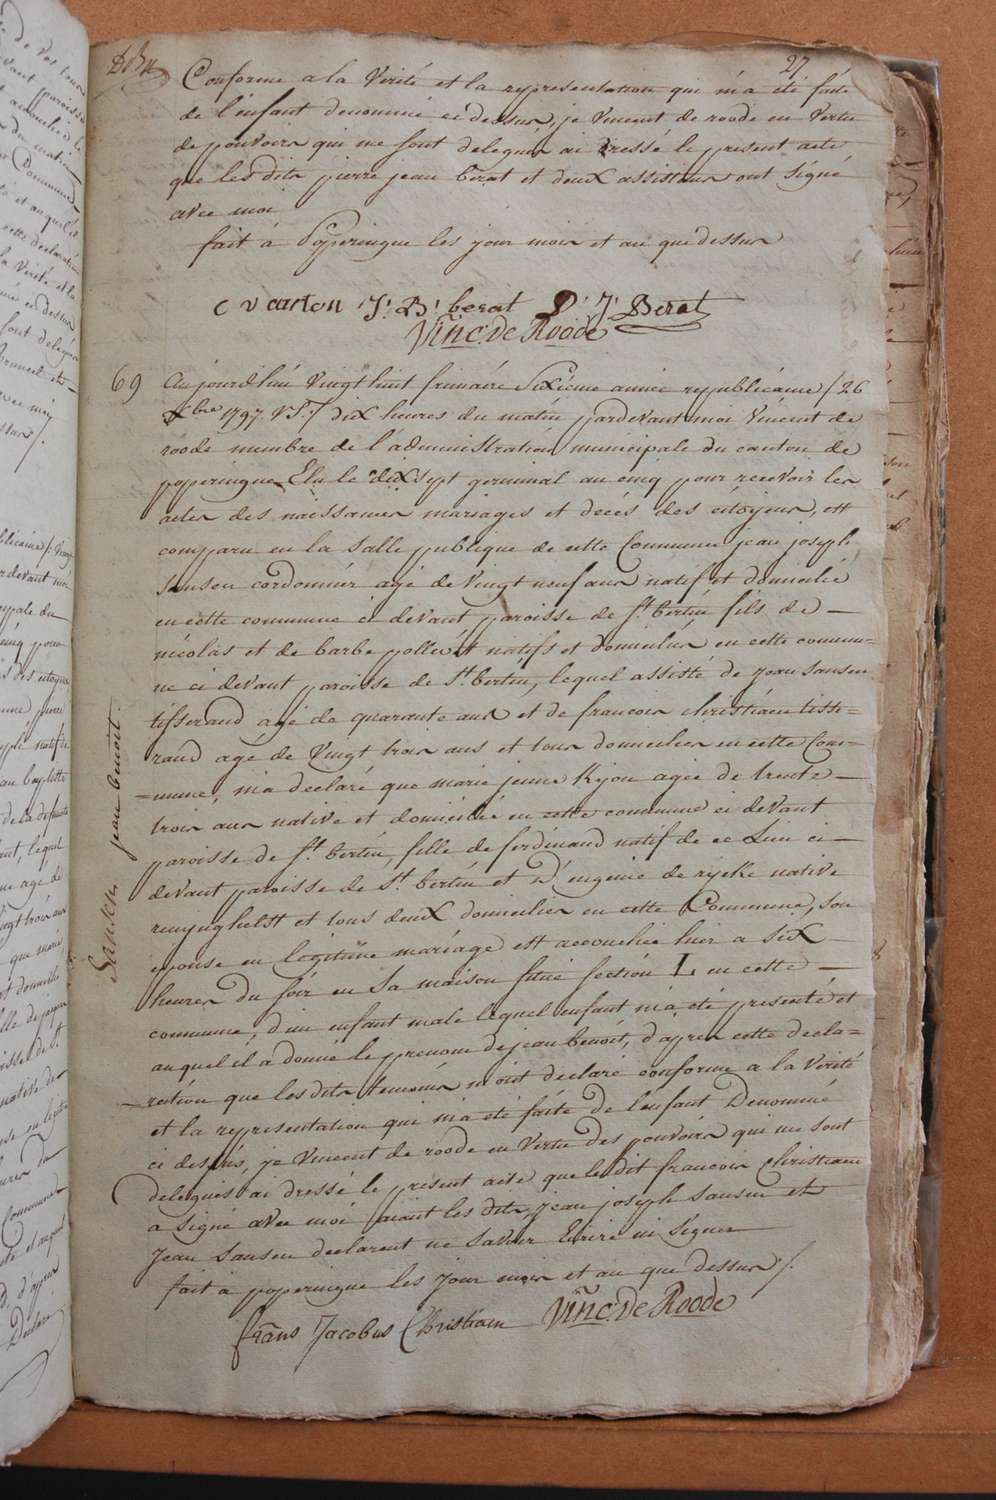 27
Conforme a la Verité et la representation qui m'a été faite
de l'enfant denommé ci dessus, je Vincent de roode en Vertu
de pouvoirs qui me sont delegués ai dressé le present acte
que les dits pierre jean berat et deux assisteurs ont signé
avec moi
fait à Poperingue les jour mois et an que dessus
J: B: berat P: J: Berat
Vinc: De Roode
69 Aujourd'hui Vingt huit frimaire Sixième année republicaine /26
Xbre 1797. V.S./ dix heures du matin pardevant moi Vincent de
roode membre de l'administration municipale du canton de
poperingue Elu le dix sept germinal an cinq pour recevoir les
actes des naissances mariages et décés des citoyens, est
comparu en la salle publique de cette Commune jean joseph
sansen cordonnier agé de Vingt neuf ans natif et domicilié
en cette commune ci devant paroisse de St. bertin fils de
nicolas et de barbe natifs et domiciliés en cette commu=
ne ci devant paroisse de St. bertin, lequel assisté de jean sansen
tisserand agé de quarante ans et de francois christiaen tisse=
rand agé de Vingt trois ans et tous domiciliés en cette Com=
=mune, m'a declaré que marie jeanne agée de trente
trois ans native et domiciliée en cette commune ci devant
paroisse de St. bertin, fille de ferdinand natif de ce Lieu ci
devant paroisse de St. bertin et d'eugenie de rycke native
renynghelst et tous deux domiciliés en cette Commune, son
epouse en legitime mariage est accouchée hier a six
heures du soir en sa maison situé section L en cette
commune, d'un enfant male lequel enfant m'a été presenté et
auquel il a donné le prenom de jean benoit, d'apres cette decla=
=ration que les dits temoins m'ont declaré conforme a la Verité
et la representation qui m'a été faite de l'enfant Denommé
ci dessus, je Vincent de roode en Vertu des pouvoirs qui me sont
delegués ai dressé le present acte que le dit francois christiaen
a signé avec moi aiant les dits jean joseph sansen et
jean sansen declarent ne savoir Ecrire ni signer
fait a poperingue les jour mois et an que dessus /.
frans Jacobus Christiaen Vinc: De Roode
Sansen jean benoit.